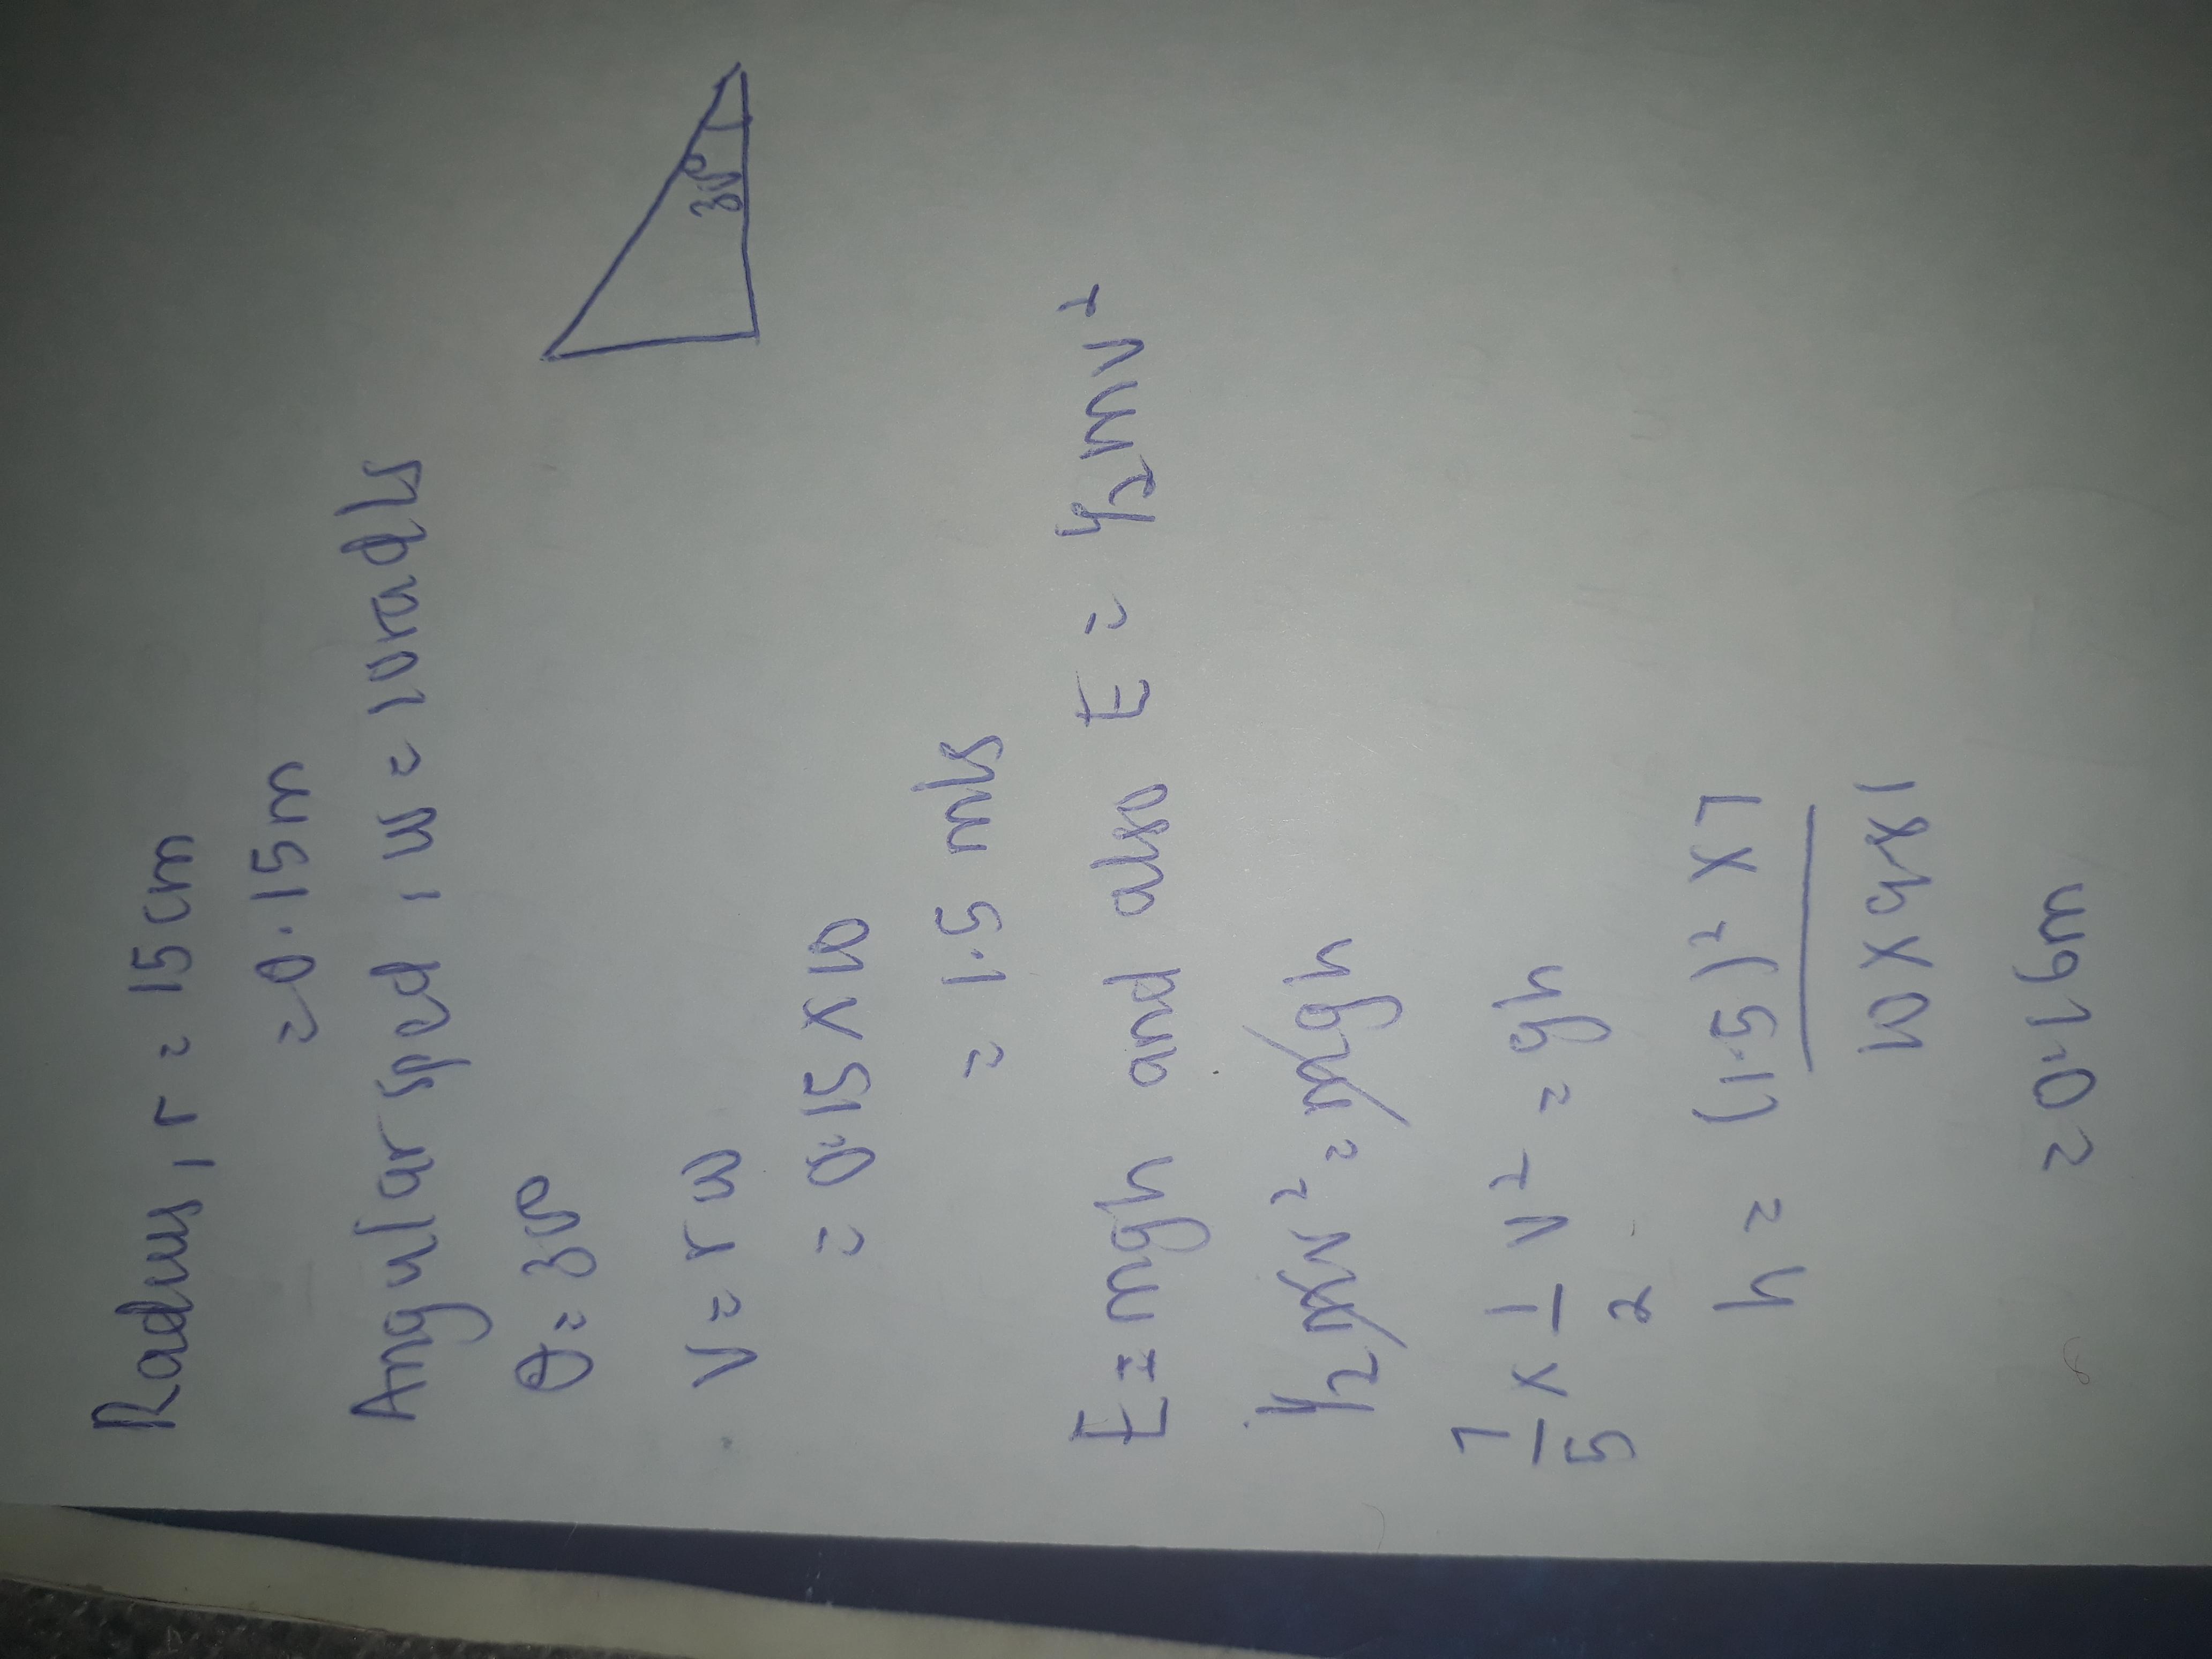 Radius, r = 15cm
= 0.15m
Angular sped, w = 10rad/s
θ = 30
30°
v = rw
= 0.15 x 10
= 1.5 m/s
E = mgh and also E = ½mv²
½mv² = mgh
7/5 x 1/2 v² = gh
h = (1.5)² x 7
10 x 9.81
= 0.16m